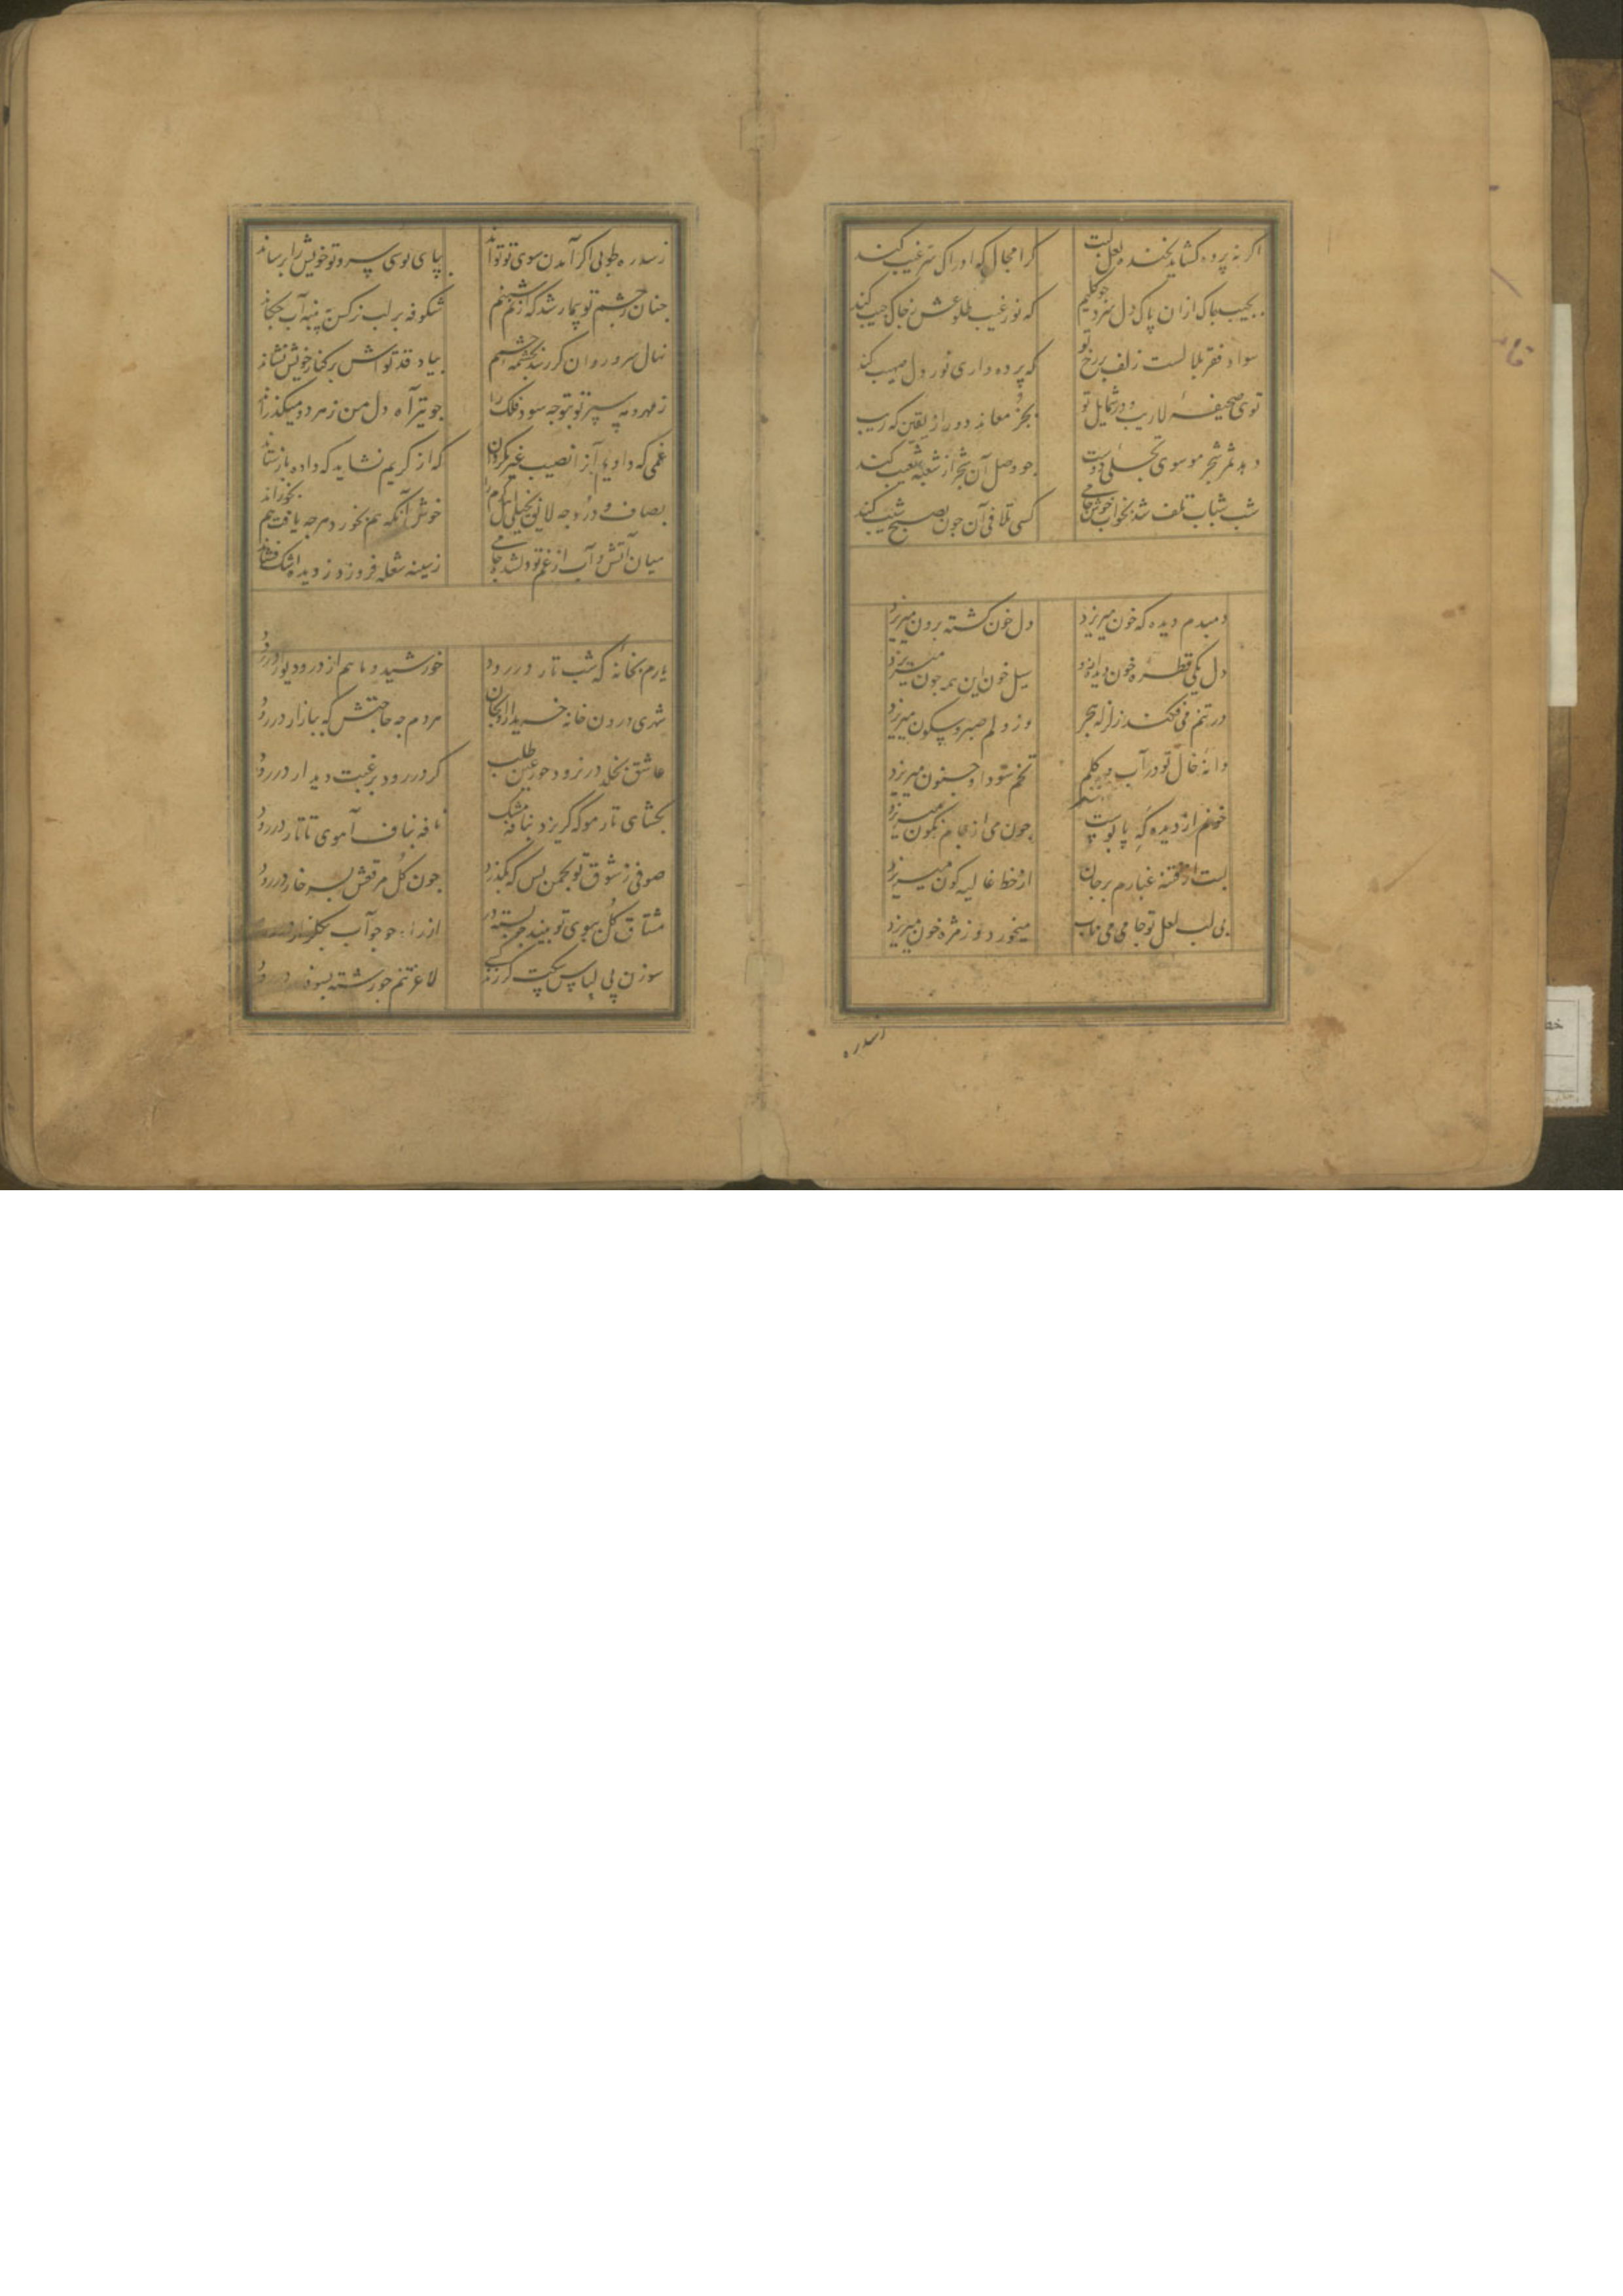 اگر نه پرده کشاید بخنده لعل لبت کرا مجال که ادراک سر غیب کند
بجیب چاک ازان پاک دل سزد چو کلیم که نور غیب طلوعش ز چاک جیب کند
سواد فقر بلالست زلف بر رخ تو که پرده داری نور دل صهیب کند
توی صحیفهٔ لاریب و در شمایل تو بجز معاند دور از یقین که ریب کند
دهد ثمر شجر موسوی تجلی دوست جو وصل آن شجر از شعبهٔ شعیب کند
شب شباب تلف شد بخواب خوش جامی کسی تلافی آن جون بصبح شیب کند
دمبدم دیده که خون میریزد دل خون کشته برون میریزد
دل یکی قطره خون دیده ازو سیل خون این همه جون میریزد
در تنم می فکند زلزله هجر وز دلم صبر و سکون میریزد
دانهٔ خال تو در آب و کلم تخم سودا و جنون میریزد
خونم از دیده که پابوست جون می از جام نکون میریزد
بست از فتنه غبارم بر جان از خط غالیه کون میریزد
بی لب لعل تو جامی می ناب میخورد وز مژه خون میریزد
زسدره
زسدره طوبی اکر آمدن سوی تو تواند بپای بوسی سرو تو خویش را برساند
جنان ز چشم تو بیمار شد که از نم شبنم شکوفه بر لب نرکس ز پنبه آب چکاند
نهال سرو روان کر رسد بچشمه چشمم بیاد قد تواش بر کنار خویش نشاند
ز مهر و مه سپر تو بتو جه سود فلک را جو تیر آه دل من ز هر دو میکذراند
غمی که داد بما آنرا نصیب غیر مکردان که از کریم نشاید که داده باز ستاند
بصاف و درد جه لایق بخیلی اهل کرم را خوش آنکه هم بخورد هرجه یافت هم بخوراند
میان آتش و آب از غم تو دلشده جامی ز سینه شعله فروزد ز دیده اشک فشاند
یارم بخانهٔ که شب تار در رود خورشید و ماهم از در و دیوار در رود
شهری درون خانه خریدار او بجان مردم جه حاجتش که ببازار در رود
عاشق بخلد در نرود حور عین طلب کر در رود برغبت دیدار در رود
بکشای تار مو که کریزد بنافه مشک نافه بناف آهوی تاتار در رود
صوفی ز شوق تو بچمن بس که بکذرد جون کل مرقعش بسر خار در رود
مشتاق کل بسوی تو بیند در بسته از راه جو جو آب بکلزار در رود
سوزن پی لباس سکت کر زند کسی لاغر تنم جو رشته بسوزن در رود